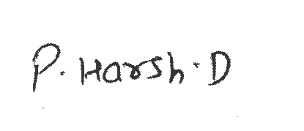 P. Harsh. D